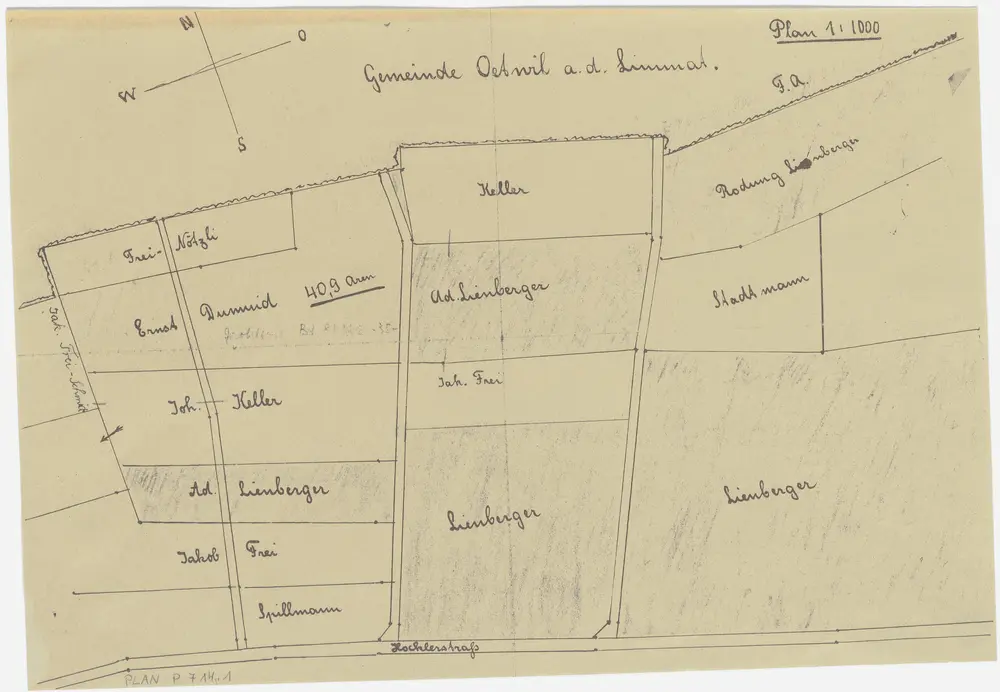 Plan 1:1000
N
O
W
S
Gemeinde Oetwil a. d. Limmat.
F. A.
Rodung Lienberger
Keller
Frei-Nötzli
Ernst Dumuid
40,9 Aren
Ad. Lienberger
Stadtmann
Jak. Frei-Schmid
Jak. Frei
Joh. Keller
Ad. Lienberger
Lienberger
Lienberger
Jakob Frei
Spillmann
Hocklerstraß
PLAN P 714.1